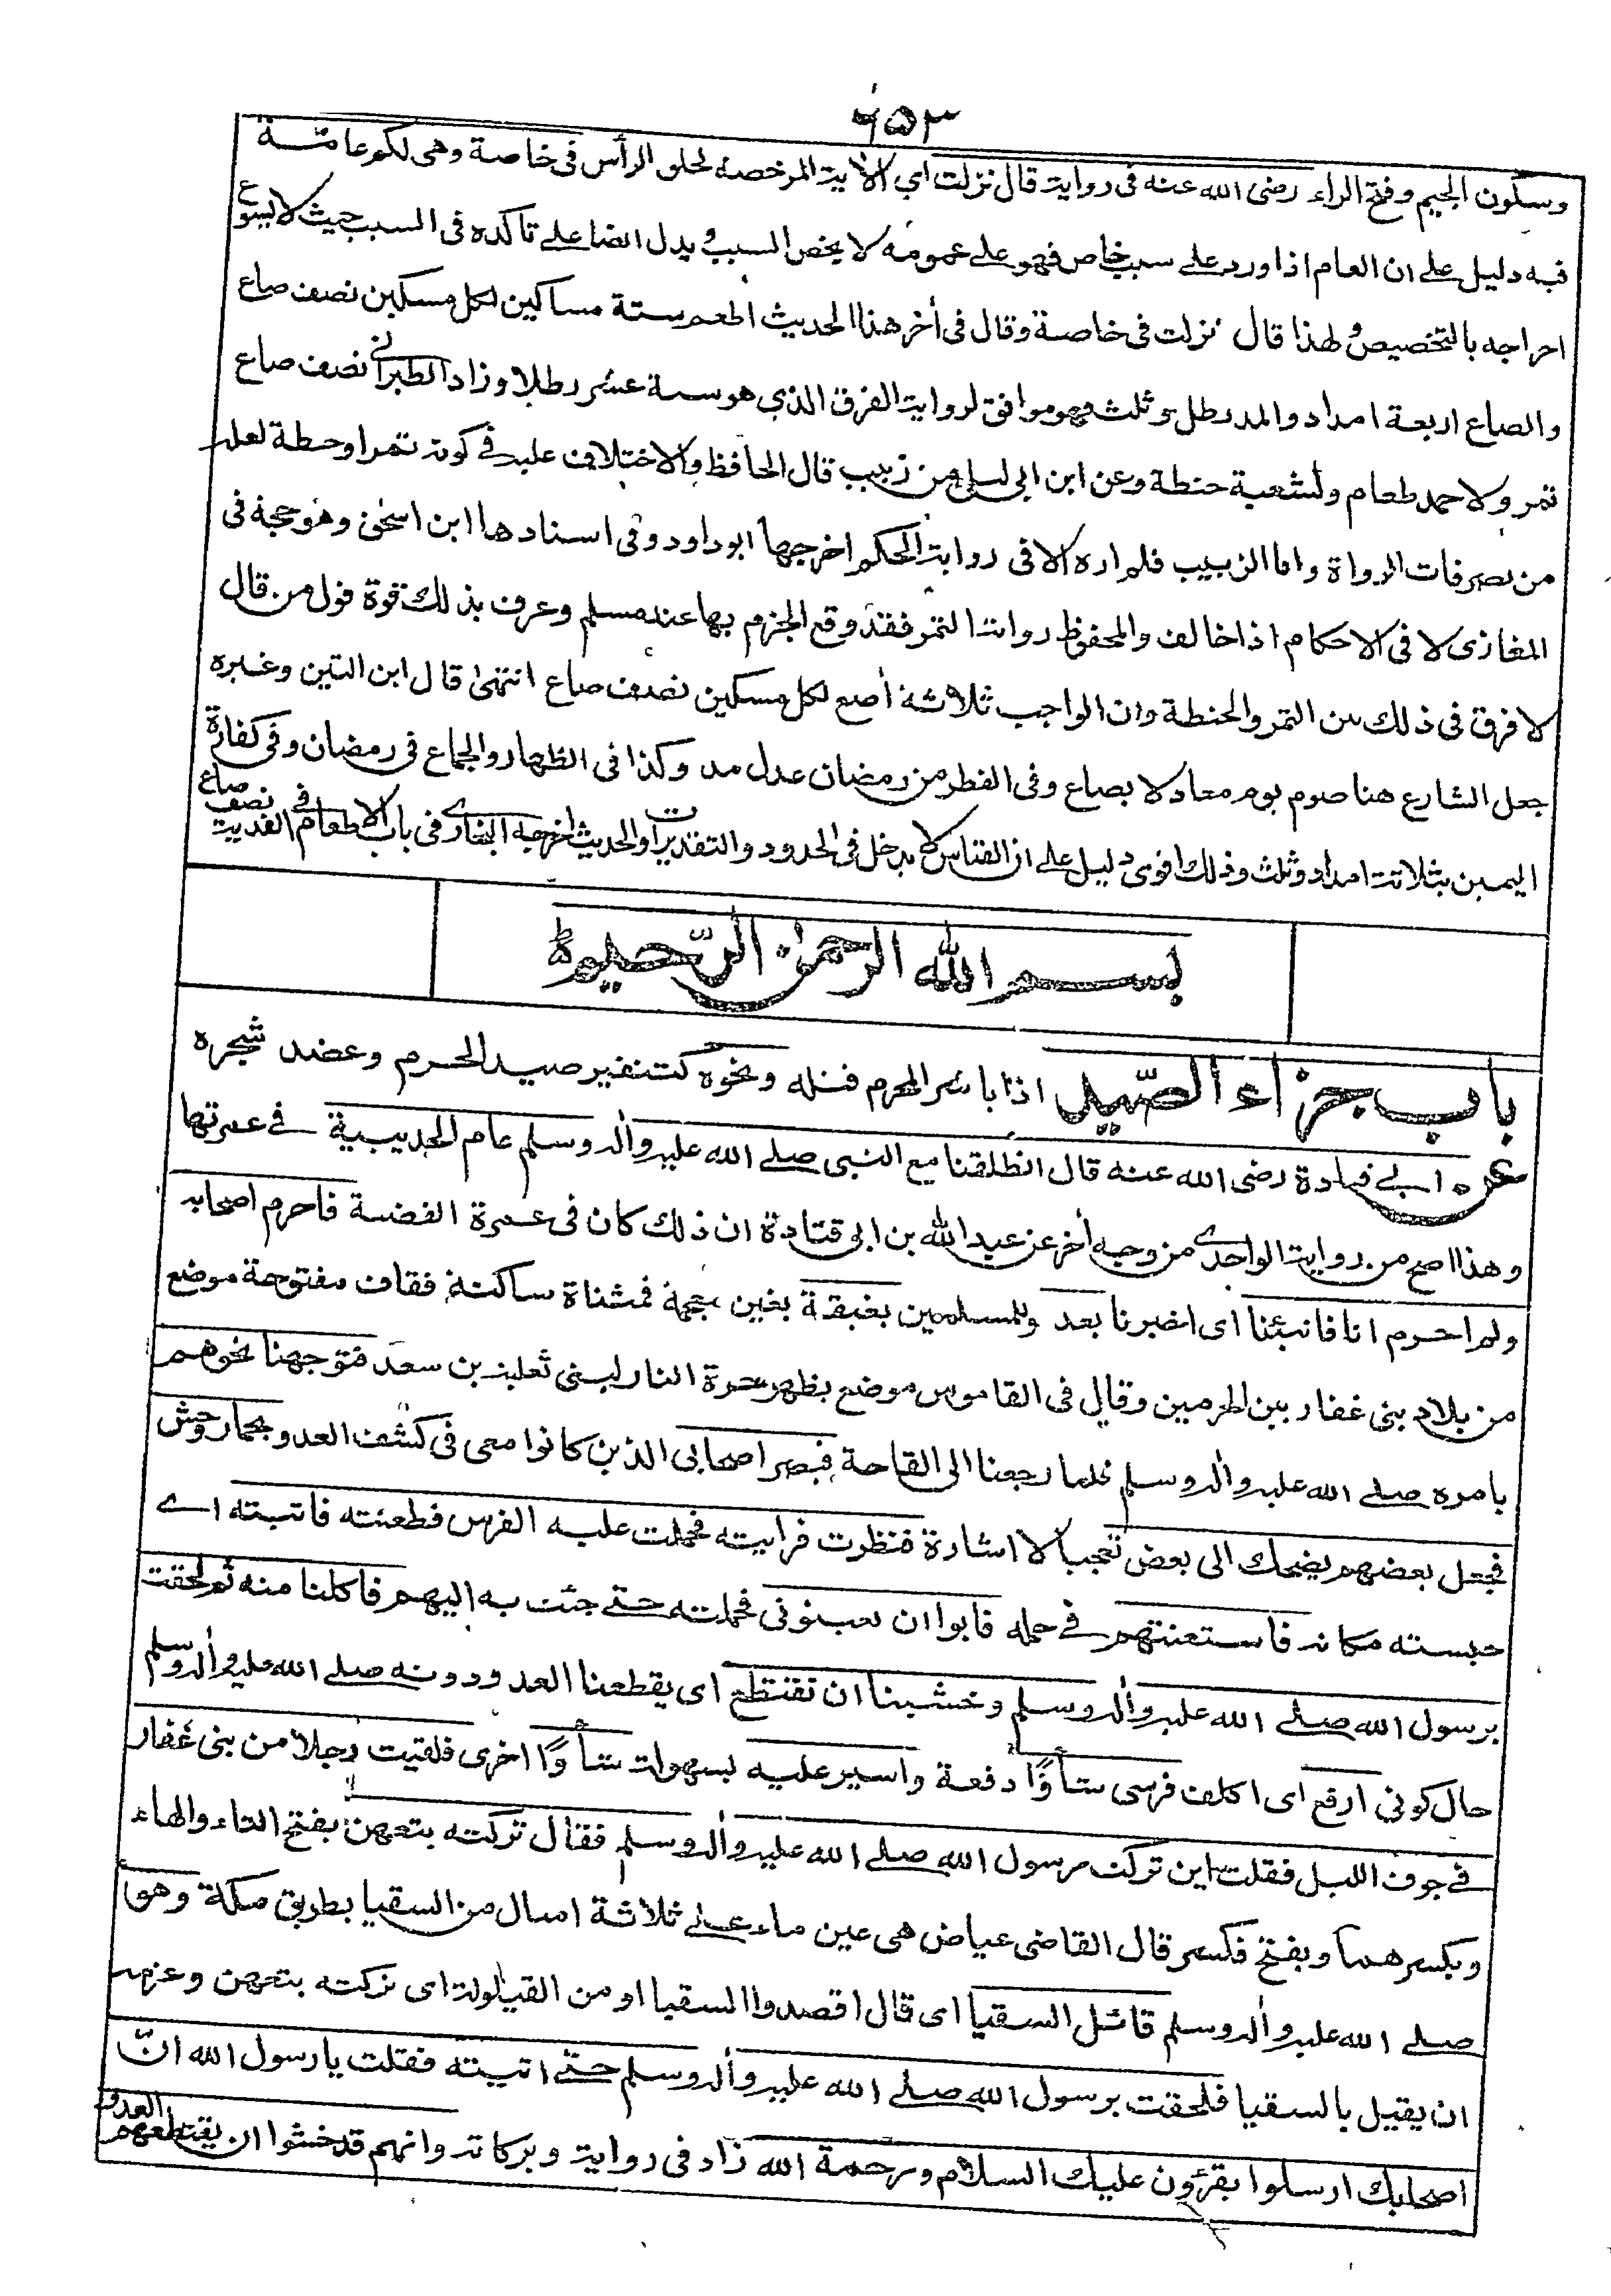 ٦٥٣
وسكون الجيم وفتح الراء رضى الله عنه فى رواية قال نزلت اى الاٰية المرخصة لحلق الرأس فى خاصة وهى لكم عامّة
فيه دليل على ان العام اذا ورد على سبب خاص فهو على عمومه لا يخص السبب ويدل ايضا على تاكده فى السبب حيث لا يسوغ
اخراجه بالتخصيص ولهذا قال نزلت فى خاصة وقال فى اٰخر هذا الحديث اطعم ستة مساكين لكل مسكين نصف صاع
والصاع اربعة امداد والمد رطل وثلث فهو موافق لرواية الفرق الذى هو ستة عشر رطلا وزاد الطبرانى نصف صاع
تمر ولاحمد طعام ولشعبة حنطة وعن ابن ابى ليلى من زبيب قال الحافظ والاختلاف عليه فى كونه تمرا او حنطة لعله
من تصرفات الرواة واما الزبيب فلم اره الا فى رواية الحكم اخرجها ابو داود وفى اسنادها ابن اسحٰق وهو حجة فى
المغازى لا فى الاحكام اذا خالف والمحفوظ رواية التمر فقد وقع الجزم بها عند مسلم وعرف بذلك قوة قول من قال
لا فرق فى ذلك بين التمر والحنطة وان الواجب ثلاثة اٰصع لكل مسكين نصف صاع انتهىٰ قال ابن التين وغيره
جعل الشارع هنا صوم يوم معادلا بصاع وفى الفطر من رمضان عدل مد وكذا فى الظهار والجماع فى رمضان وفى كفارة
اليمين بثلاثة امداد وثلث وذلك اقوى دليل على ان القياس لا يدخل فى الحدود والتقديرات والحديث اخرجه البخارى فى باب الاطعام فى الفدية نصف صاع
بسم الله الرحمٰن الرّحيم
باب جزاء الصّيد اذا باشر المحرم قتله ونحوه كتنفير صيد الحرم وعضد شجره
عن ابى قتادة رضى الله عنه قال انطلقنا مع النبى صلى الله عليه واٰله وسلم عام الحديبية فى عمرتها
وهذا اصح من رواية الواحدى من وجه اٰخر عن عبد الله بن ابى قتادة ان ذلك كان فى عمرة القضية فاحرم اصحابه
ولم احرم انا فانبئنا اى اخبرنا بعد وللمسلمين بغيقة بغين معجمة فمثناة ساكنة فقاف مفتوحة موضع
من بلاد بنى غفار بين الحرمين وقال فى القاموس موضع بظهر حرة النار لبنى ثعلبة بن سعد فتوجهنا نحوهم
بامره صلى الله عليه واٰله وسلم فلما رجعنا الى القاحة فبصر اصحابى الذين كانوا معى فى كشف العدو بحمار وحش
فجعل بعضهم يضحك الى بعض تعجبا لا اشارة فنظرت فرايته فحملت عليه الفرس فطعنته فاثبته اى
حبسته مكانه فاستعنتهم فى حمله فابوا ان يعينونى فحملته حتى جئت به اليهم فاكلنا منه ثم لحقت
برسول الله صلى الله عليه واٰله وسلم وخشينا ان نقتطع اى يقطعنا العدو دونه صلى الله عليه واٰله وسلم
حال كونى ارفع اى اكلف فرسى شأوًا دفعة واسير عليه بسهولة شأوًا اخرى فلقيت رجلا من بنى غفار
فى جوف الليل فقلت اين تركت رسول الله صلى الله عليه واٰله وسلم فقال تركته بتعهن بفتح التاء والهاء
وبكسرهما وبفتح فكسر قال القاضى عياض هى عين ماء على ثلاثة اميال من السقيا بطريق مكة وهو
صلى الله عليه واٰله وسلم قائل السقيا اى قال اقصدوا السقيا او من القيلولة اى تركته بتعهن وعزمه
ان يقيل بالسقيا فلحقت برسول الله صلى الله عليه واٰله وسلم حتّى اتيته فقلت يا رسول الله انّ
اصحابك ارسلوا يقرءون عليك السلام ورحمة الله زاد فى رواية وبركاته وانهم قد خشوا ان يقتطعهم العدو